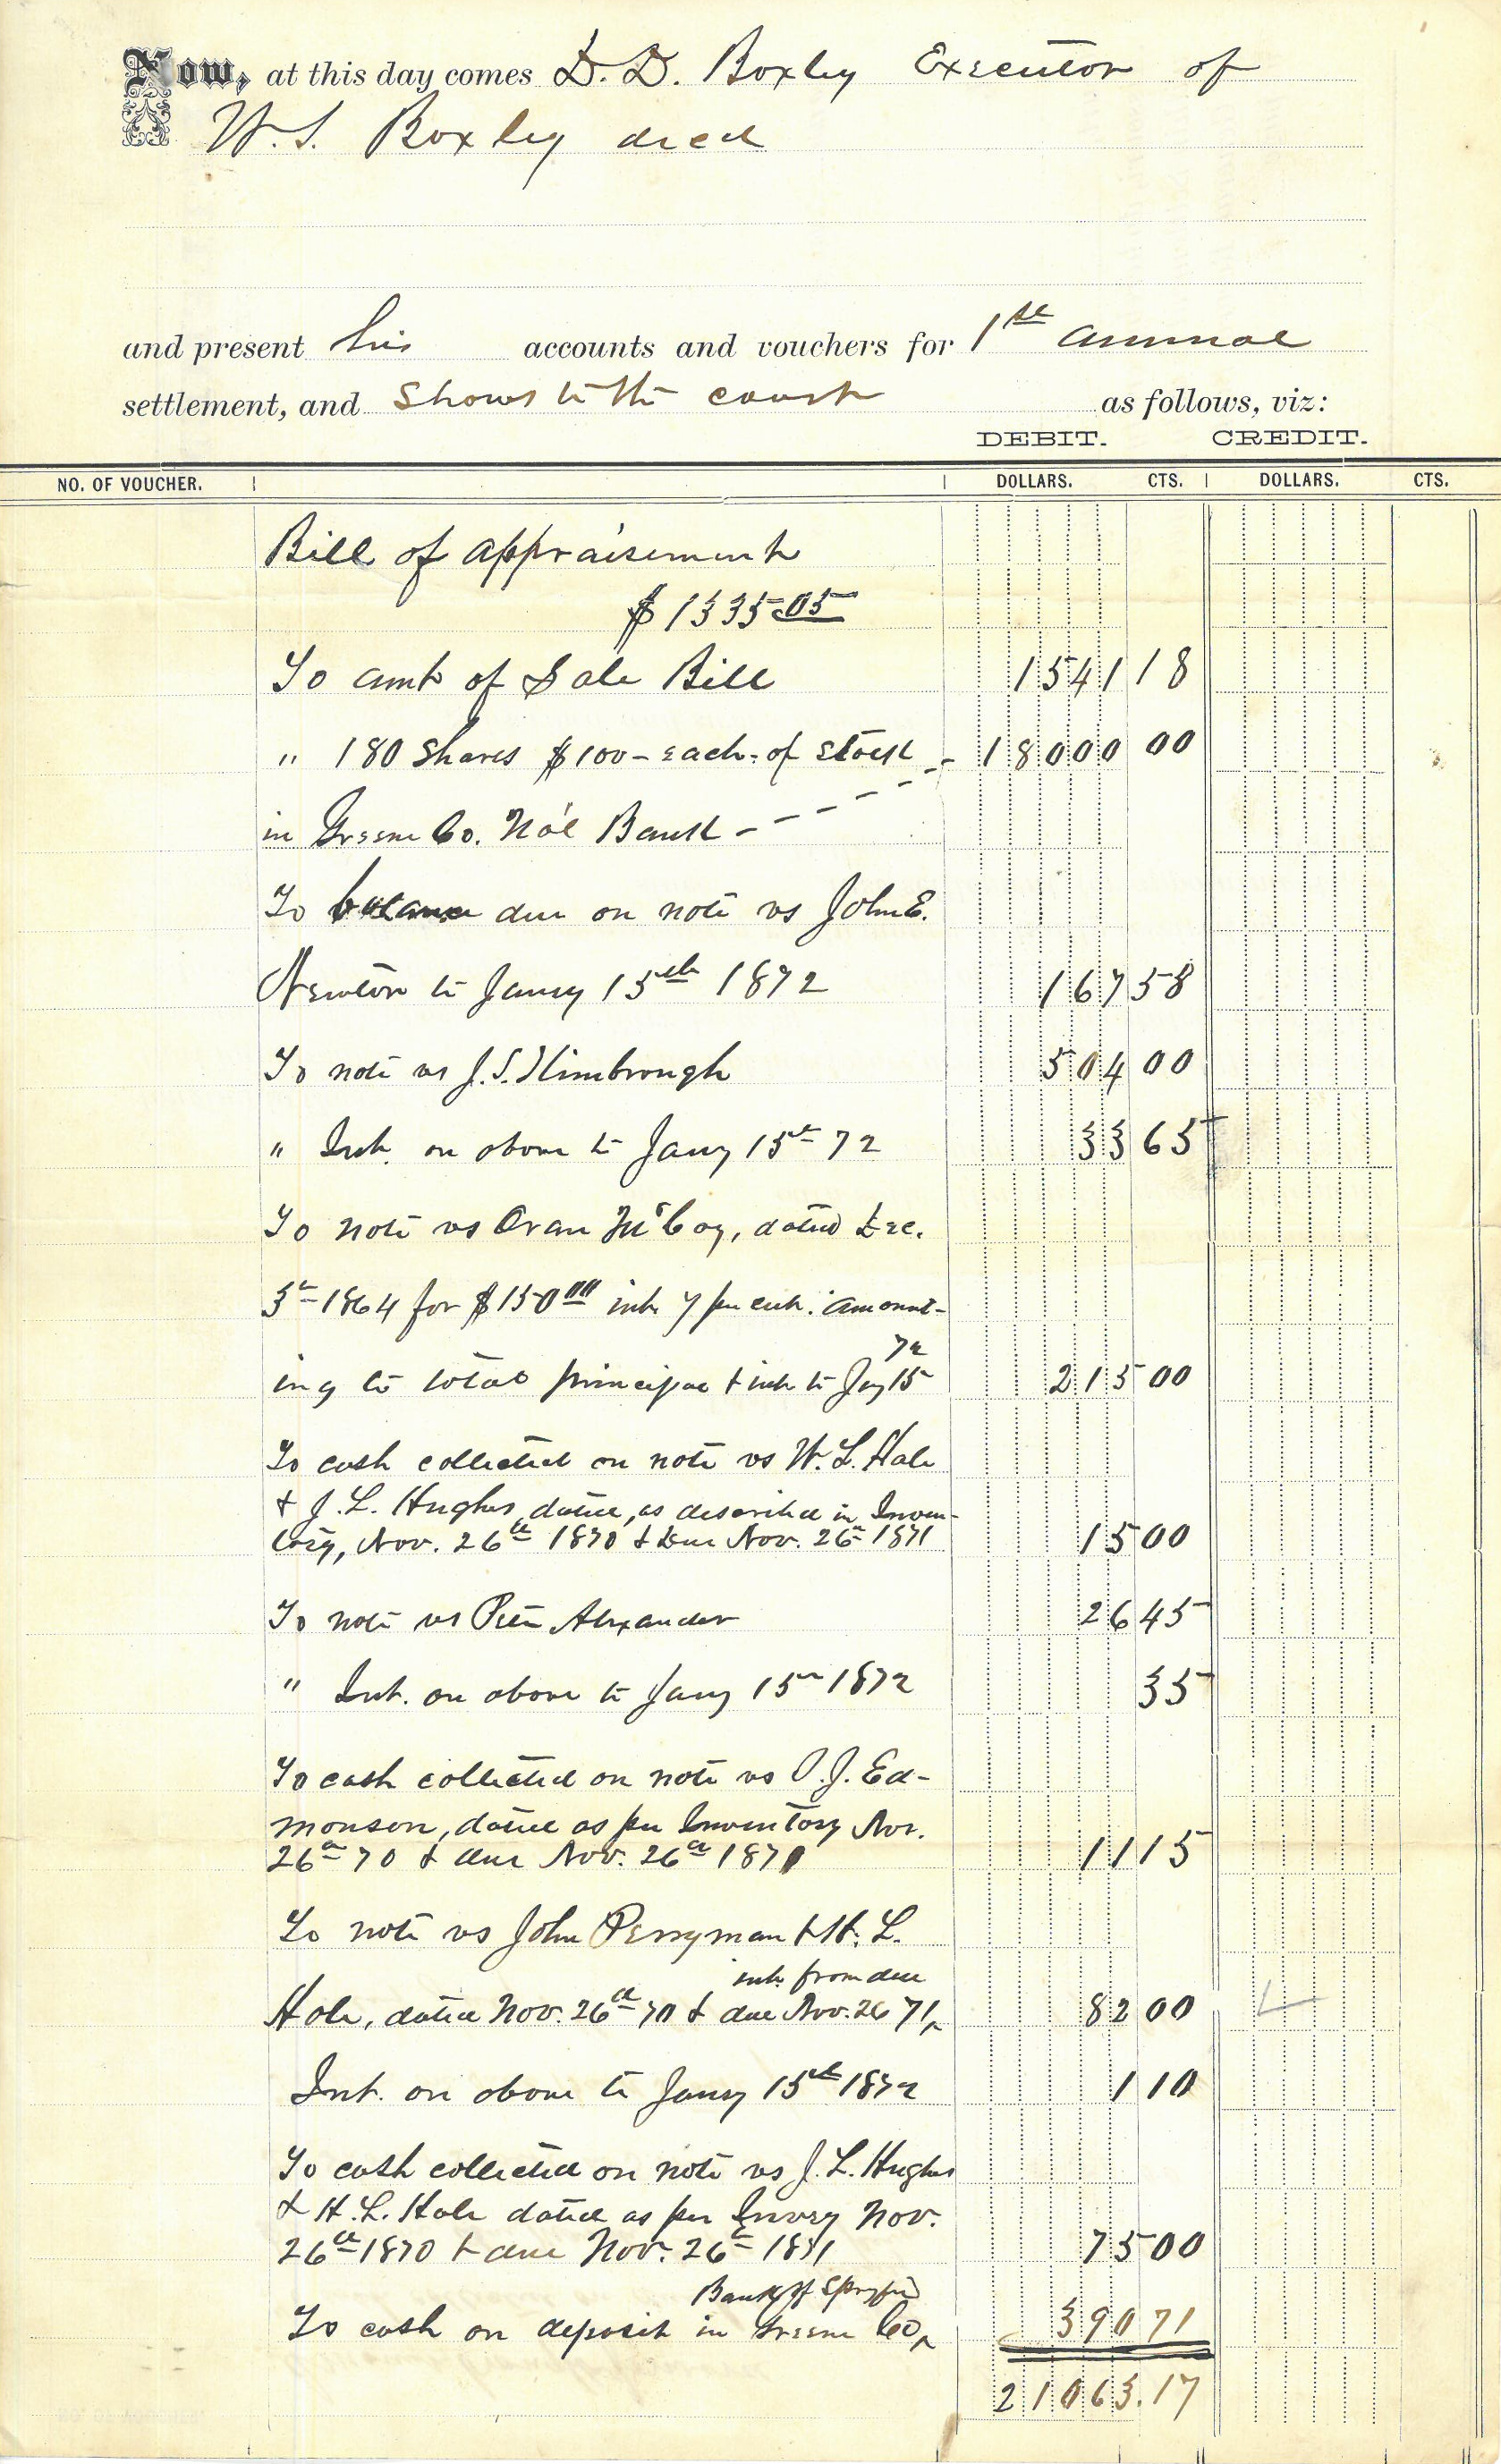 Now, at this day comes D. D. Boxley Executor of
W. S. Boxley decd
and present his accounts and vouchers for 1st annual
settlement, and shows to the court as follows, viz:
DEBIT. CREDIT.
NO. OF VOUCHER. DOLLARS. CTS. DOLLARS. CTS.
Bill of appraisement
$1335 05
To amt of Sale Bill 1541 18
" 180 shares $100 - each - of stock - - 18000 00
in Greene Co. Na'l Bank - - - - -
To balance due on note vs John E.
Newton to Jany 15th 1872 167 58
To note vs J. S. Kimbrough 504 00
" Int. on above to Jany 15th 72 33 65
To note vs Oran McCoy, dated Dec.
5th 1864 for $150 00 int 7 per cent. amount-
72
ing to total principal & int to Jay 15 215 00
To cash collected on note vs W. L. Hale
& J. L. Hughes, dated, as described in Inven-
tory, Nov. 26th 1870 & Due Nov. 26th 1871 15 00
To note vs Pete Alexander 26 45
" Int. on above to Jany 15th 1872 35
To cash collected on note vs J. Ed-
monson, dated as per Inventory Nov.
26th 70 & due Nov. 26th 1871 11 15
To note vs John Perryman & H. L.
int from due
Hale, dated Nov. 26th 70 & due Nov. 26 71, 82 00
Int. on above to Jany 15th 1872 1 10
To cash collected on note vs J. L. Hughes
& H. L. Hale dated as per Invory Nov.
26th 1870 & due Nov. 26th 1871 75 00
Bank of Spngfied
To cash on deposit in Greene Co, 390 71
21063.17